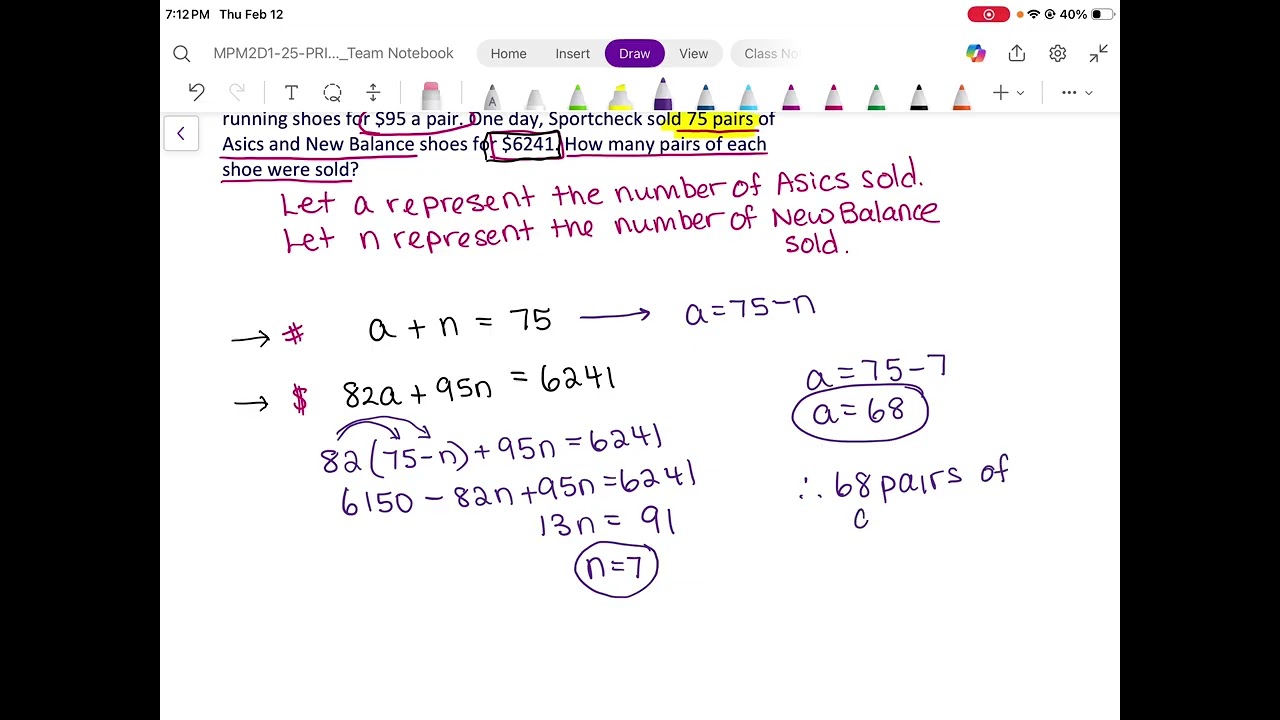 7:12 PM Thu Feb 12
40%
MPM2D1-25-PRI..._Team Notebook Home Insert Draw View Class No
running shoes for $95 a pair. One day, Sportcheck sold 75 pairs of
Asics and New Balance shoes for $6241. How many pairs of each
shoe were sold?
Let a represent the number of Asics sold.
Let n represent the number of New Balance
sold.
→ # a + n = 75 → a = 75 - n
→ $ 82a + 95n = 6241
82(75-n) + 95n = 6241
6150 - 82n + 95n = 6241
13n = 91
n = 7
a = 75 - 7
a = 68
∴ 68 pairs of